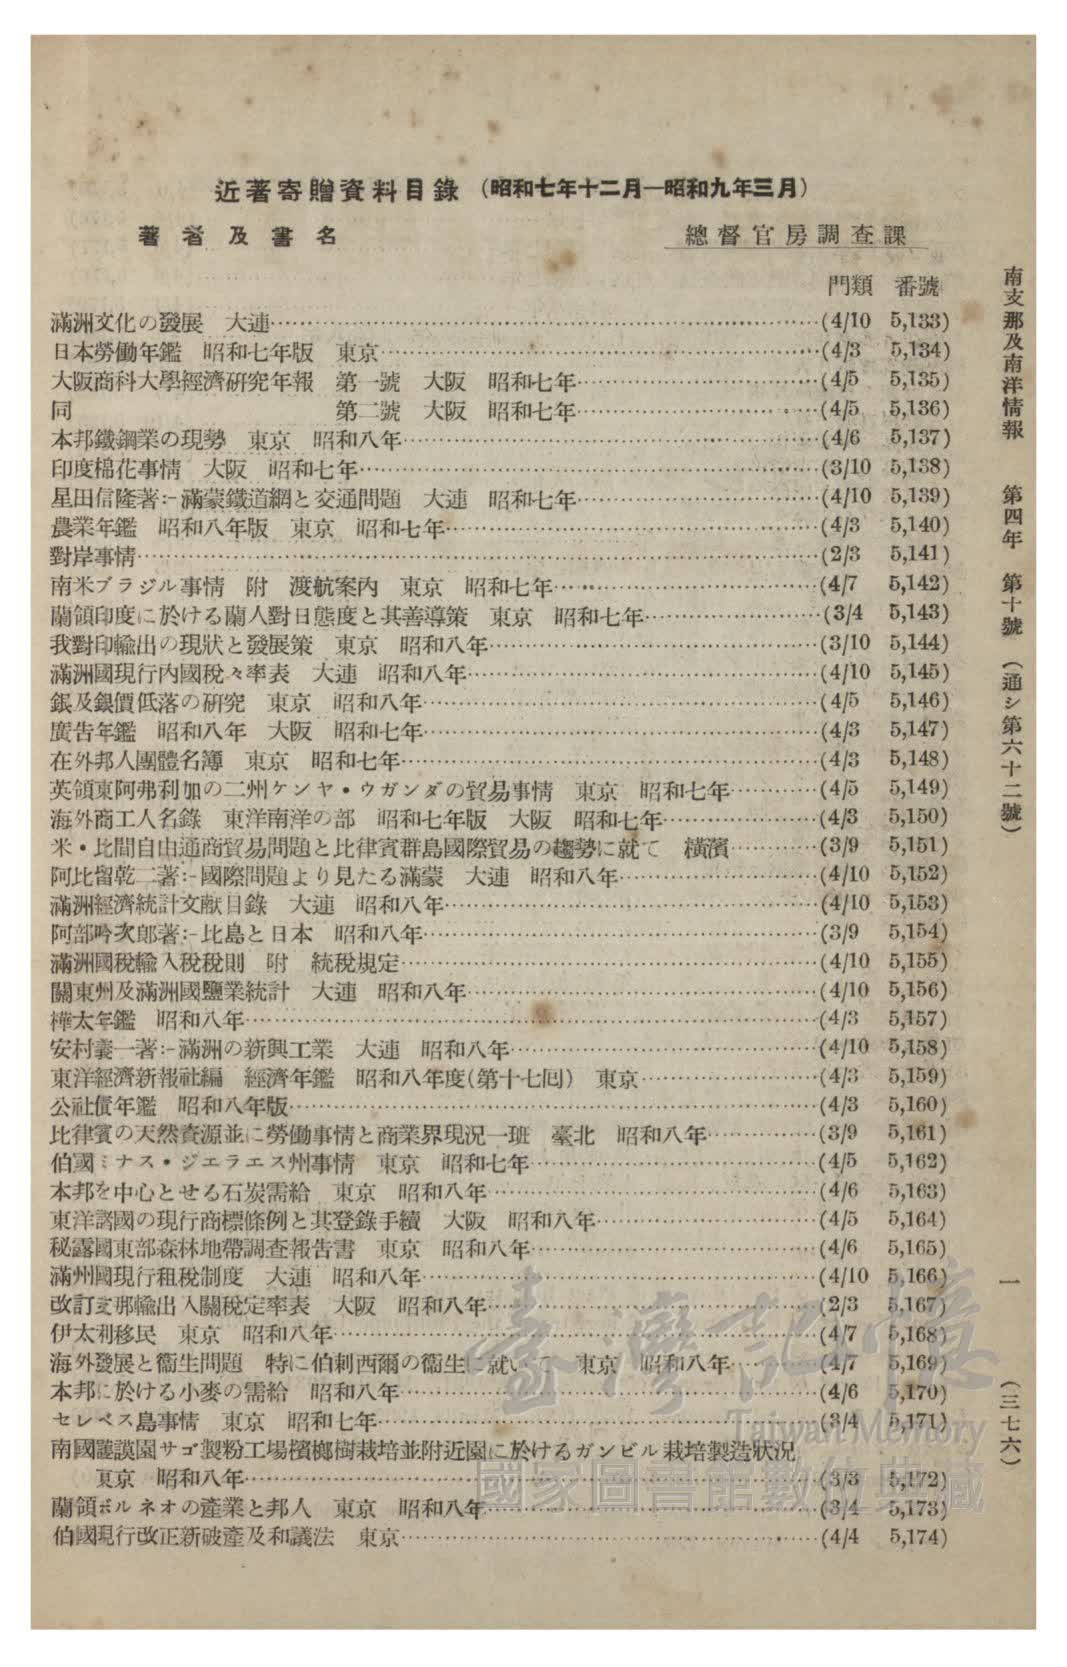 近著寄贈資料目錄 (昭和七年十二月—昭和九年三月)
著者及書名 總督官房調查課
門類 番號
滿洲文化の發展 大連…(4/10 5,133)
日本勞働年鑑 昭和七年版 東京…(4/3 5,134)
大阪商科大學經濟研究年報 第一號 大阪 昭和七年…(4/5 5,135)
同 第二號 大阪 昭和七年…(4/5 5,136)
本邦鐵鋼業の現勢 東京 昭和八年…(4/6 5,137)
印度棉花事情 大阪 昭和七年…(3/10 5,138)
星田信隆著:-滿蒙鐵道網と交通問題 大連 昭和七年…(4/10 5,139)
農業年鑑 昭和八年版 東京 昭和七年…(4/3 5,140)
對岸事情…(2/3 5,141)
南米ブラジル事情 附 渡航案內 東京 昭和七年…(4/7 5,142)
蘭領印度に於ける蘭人對日態度と其善導策 東京 昭和七年…(3/4 5,143)
我對印輸出の現狀と發展策 東京 昭和八年…(3/10 5,144)
滿洲國現行內國稅々率表 大連 昭和八年…(4/10 5,145)
銀及銀價低落の研究 東京 昭和八年…(4/5 5,146)
廣告年鑑 昭和八年 大阪 昭和七年…(4/3 5,147)
在外邦人團體名簿 東京 昭和七年…(4/3 5,148)
英領東阿弗利加の二州ケンヤ・ウガンダの貿易事情 東京 昭和七年…(4/5 5,149)
海外商工人名錄 東洋南洋の部 昭和七年版 大阪 昭和七年…(4/3 5,150)
米・比間自由通商貿易問題と比律賓群島國際貿易の趨勢に就て 橫濱…(3/9 5,151)
阿比留乾二著:-國際問題より見たる滿蒙 大連 昭和八年…(4/10 5,152)
滿洲經濟統計文献目錄 大連 昭和八年…(4/10 5,153)
阿部吟次郞著:-比島と日本 昭和八年…(3/9 5,154)
滿洲國稅輸入稅稅則 附 統稅規定…(4/10 5,155)
關東州及滿洲國鹽業統計 大連 昭和八年…(4/10 5,156)
樺太年鑑 昭和八年…(4/3 5,157)
安村義一著:-滿洲の新興工業 大連 昭和八年…(4/10 5,158)
東洋經濟新報社編 經濟年鑑 昭和八年度(第十七回) 東京…(4/3 5,159)
公社債年鑑 昭和八年版…(4/3 5,160)
比律賓の天然資源並に勞働事情と商業界現況一班 臺北 昭和八年…(3/9 5,161)
伯國ミナス・ジエラエス州事情 東京 昭和七年…(4/5 5,162)
本邦を中心とせる石炭需給 東京 昭和八年…(4/6 5,163)
東洋諸國の現行商標條例と其登錄手續 大阪 昭和八年…(4/5 5,164)
秘露國東部森林地帶調查報告書 東京 昭和八年…(4/6 5,165)
滿州國現行租稅制度 大連 昭和八年…(4/10 5,166)
改訂支那輸出入關稅定率表 大阪 昭和八年…(2/3 5,167)
伊太利移民 東京 昭和八年…(4/7 5,168)
海外發展と衞生問題 特に伯剌西爾の衞生に就いて 東京 昭和八年…(4/7 5,169)
本邦に於ける小麥の需給 昭和八年…(4/6 5,170)
セレベス島事情 東京 昭和七年…(3/4 5,171)
南國護謨園サゴ製粉工場檳榔樹栽培並附近園に於けるガンビル栽培製造狀況
東京 昭和八年…(3/3 5,172)
蘭領ボルネオの產業と邦人 東京 昭和八年…(3/4 5,173)
伯國現行改正新破產及和議法 東京…(4/4 5,174)
南支那及南洋情報 第四年 第十號 (通シ第六十二號) 一 (三七六)
臺灣記憶
Taiwan Memory
國家圖書館數位典藏